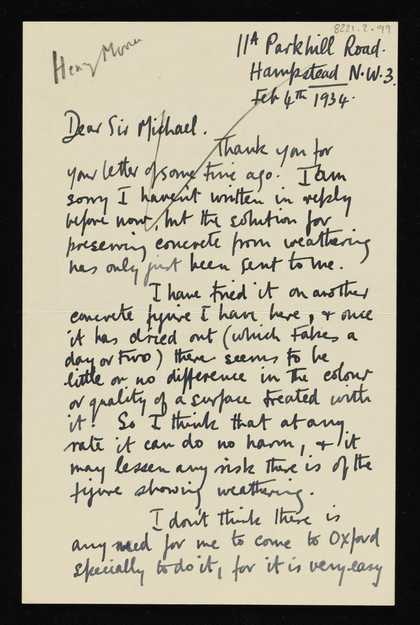 8221.2.99
Henry Moore
11A Parkhill Road.
Hampstead N.W.3.
Feb 4th 1934.
Dear Sir Michael.
Thank you for
your letter of some time ago. I am
sorry I haven't written in reply
before now, but the solution for
preserving concrete from weathering
has only just been sent to me.
I have tried it on another
concrete figure I have here, & once
it has dried out (which takes a
day or two) there seems to be
little or no difference in the colour
or quality of a surface treated with
it. So I think that at any
rate it can do no harm, & it
may lessen any risk there is of the
figure showing weathering.
I don't think there is
any need for me to come to Oxford
specially to do it, for it is very easy